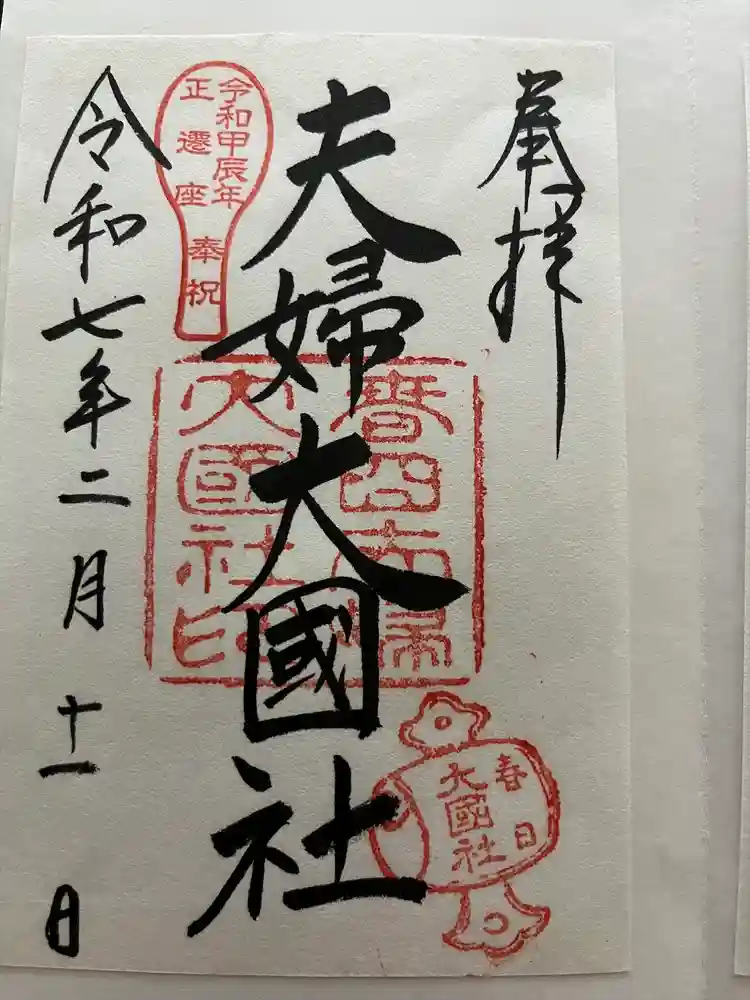 奉拝
夫婦大國社
令和七年二月十一日
令和甲辰年
正遷座
奉祝
春日夫婦
大國社印
春日
大國社